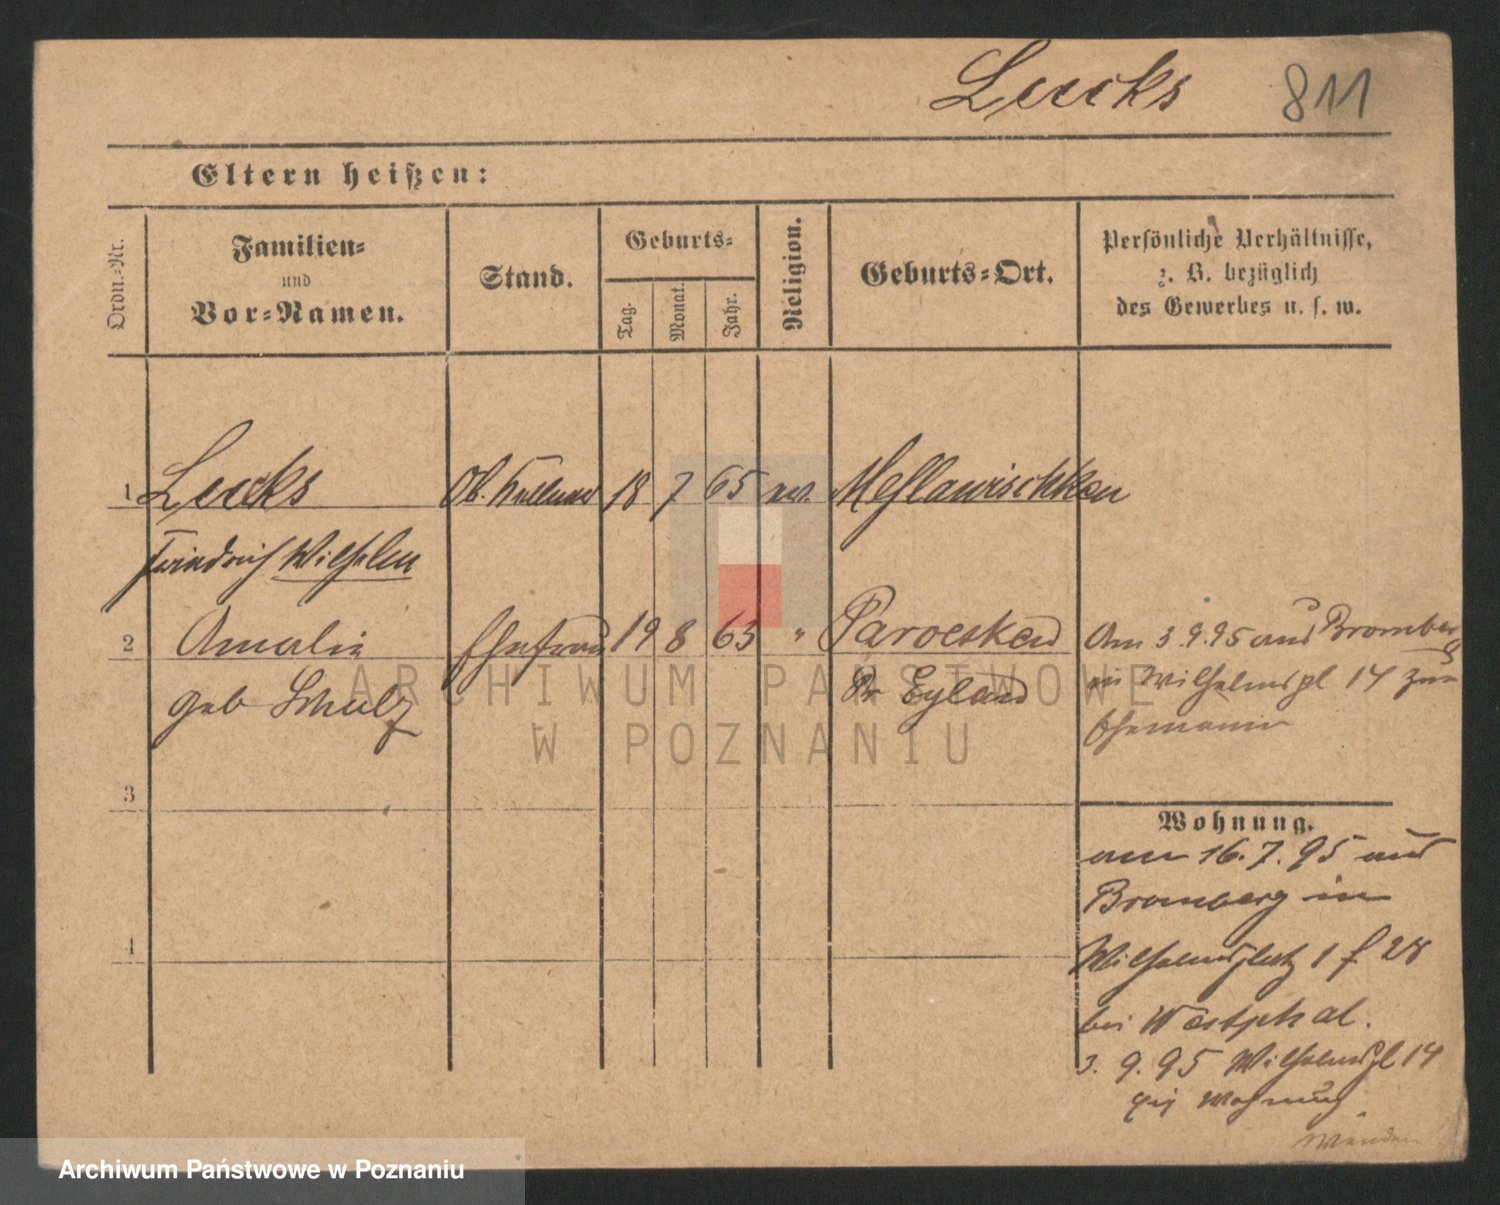 Lucks 811
Eltern heißen:
Ordn.-Nr.
Familien-
und
Vor-Namen.
Stand.
Geburts-
Tag.
Monat.
Jahr.
Religion.
Geburts-Ort.
Persönliche Verhältnisse,
z. B. bezüglich
des Gewerbes u. s. w.
1 Lucks Ob. Kellner 18 7 65 ev. Meslauwischken
Friedrich Wilhelm
2 Amalie Ehefrau 19 8 63 " Paroesken
geb Schulz Pr Eyland
Am 3.9.95 aus Bromberg
in Wilhelmspl 14 zum
Ehemann
3
4
Wohnung.
am 16.7.95 aus
Bromberg in
Wilhelmsplatz 1
bei Westphal.
3. 9. 95 Wilhelmspl 14
Wohnung
Wenden
ARCHIWUM PAŃSTWOWE
W POZNANIU
Archiwum Państwowe w Poznaniu